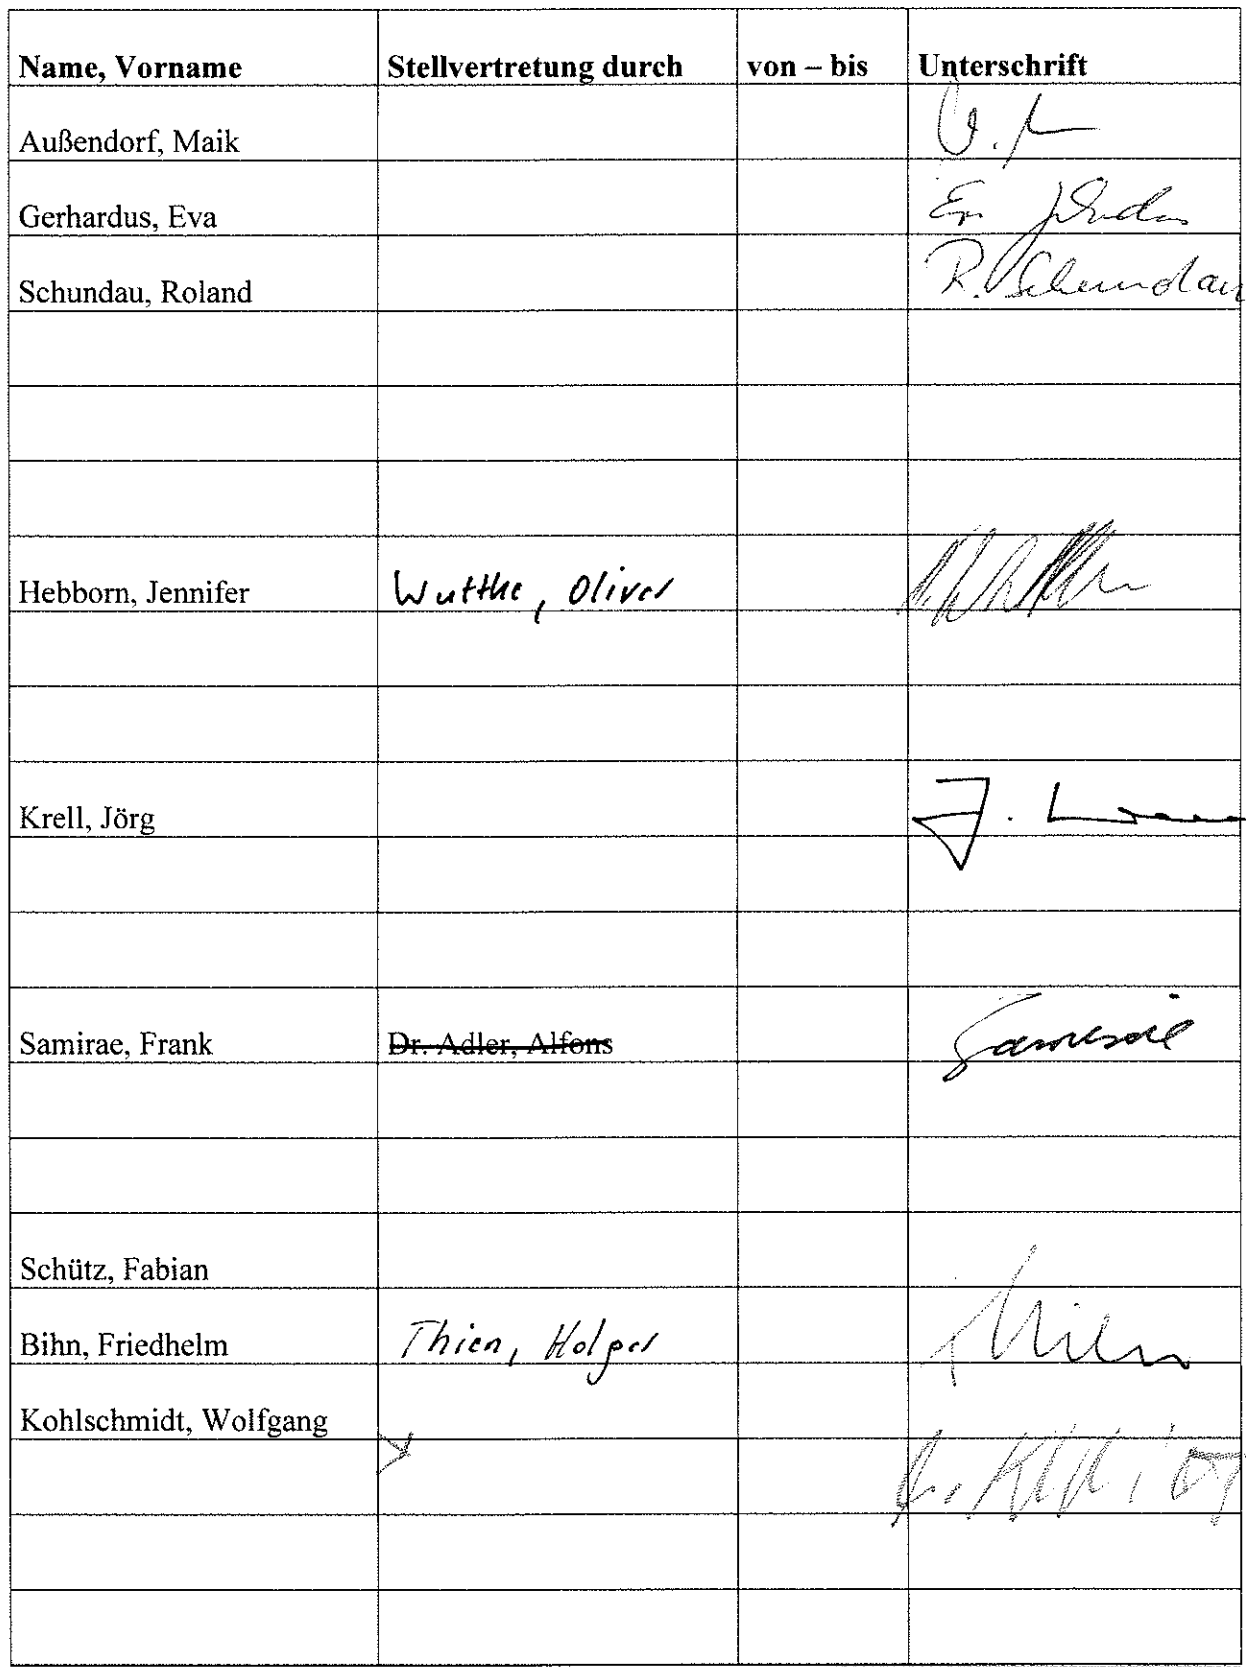 Name, Vorname Stellvertretung durch von – bis Unterschrift
Außendorf, Maik
Gerhardus, Eva
Schundau, Roland R. Schundau
Hebborn, Jennifer Wuttke, Oliver
Krell, Jörg J.
Samirae, Frank Dr. Adler, Alfons Samirae
Schütz, Fabian
Bihn, Friedhelm Thien, Holger
Kohlschmidt, Wolfgang